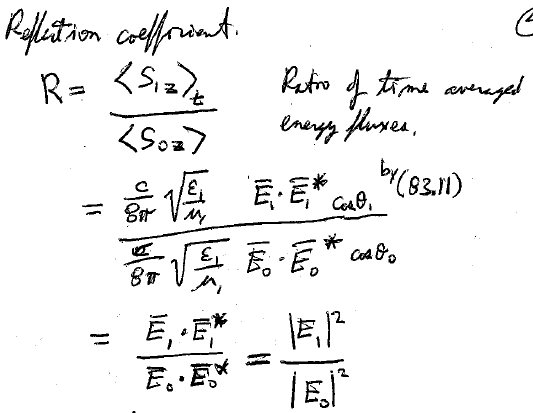 Reflection coefficient.
R = <S₁z>t / <S₀z> Ratio of time averaged energy fluxes.
= c/8π √(ε₁/μ₁) E̅₁·E̅₁* cosθ₁ / c/8π √(ε₁/μ₁) E̅₀·E̅₀* cosθ₀ by (83.11)
= E̅₁·E̅₁* / E̅₀·E̅₀* = |E₁|² / |E₀|²